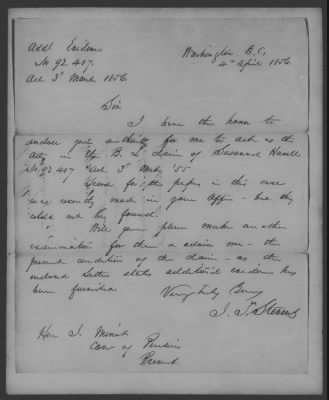 Addl Evidence
No 92.407.
Act 3d March 1855.
Washington D.C.
4th April 1856.
Sir
I have the honor to
enclose you authority for me to act as the
atty in the B. L. claim of Susannah
No 92.407 Act 3d March '55
Search for the papers in this case
was recently made in your Office - but they
could not be found.
Will you please make another
examination for them & advise me - the
present condition of the claim - as the
enclosed letter states additional evidence has
been furnished
Very truly Yours
J. T. Stevens
Hon J. Minot
Com of Pensions
Present.